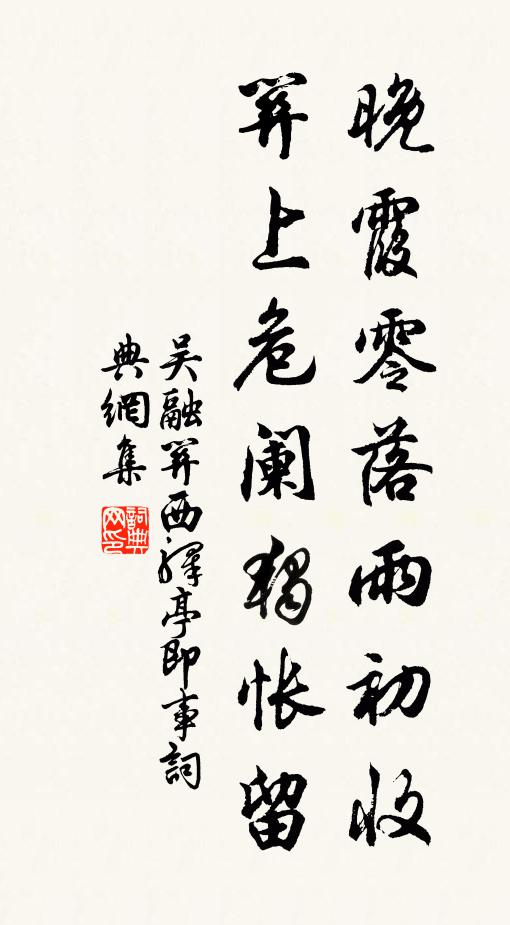 晚霞零落雨初收
關上危闌獨悵留
吳融關西驛亭即事詞
典網集
詞典
网印